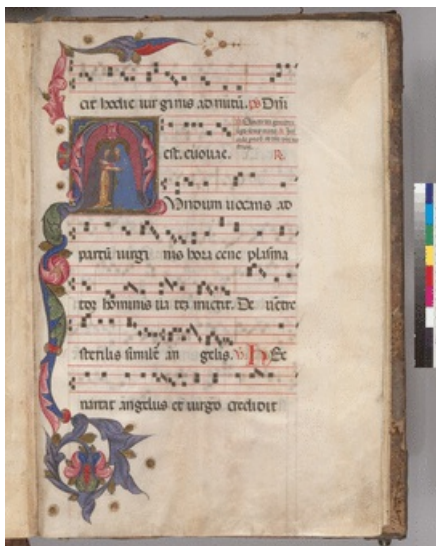 cit hodie uirginis ad nutū. ps Dñi
est. euouae. R.
undum uocans ad
partū uirginis hora cene plasma
tor hominis uatez mictit. De uētre
sterilis similē angelis. V. Et
narrat angelus et uirgo credidit